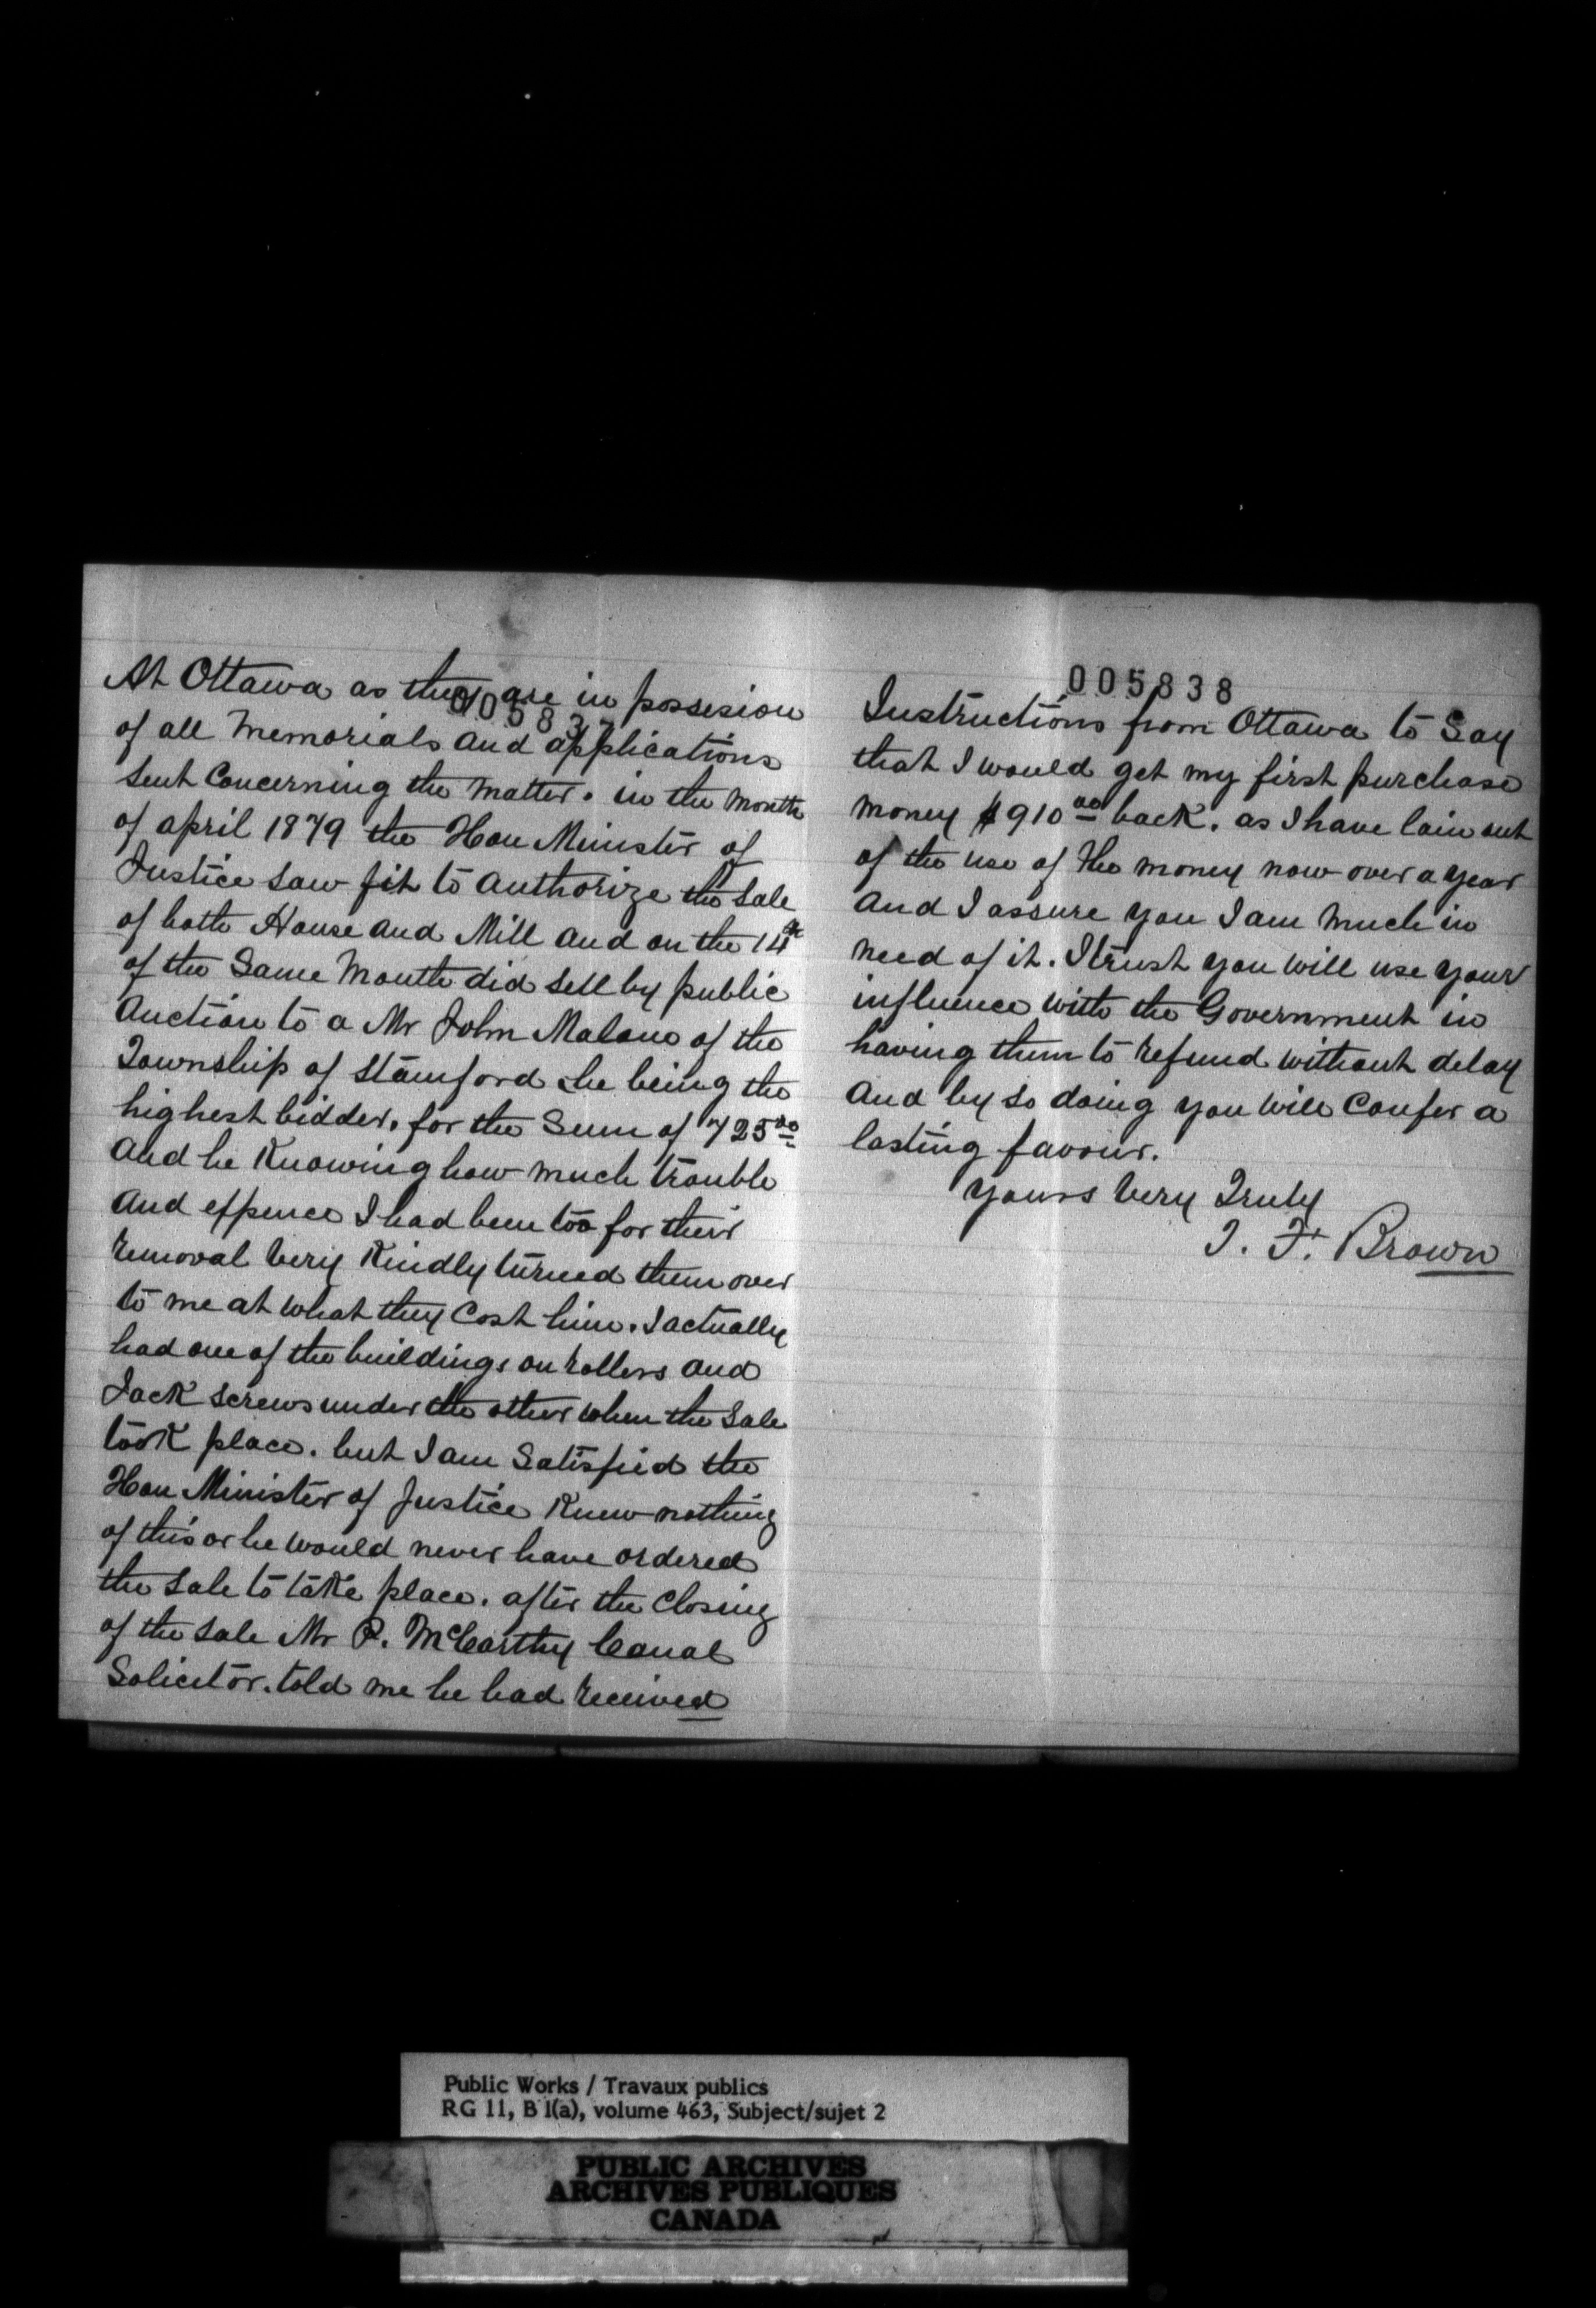 At Ottawa as they are in possesion
005837
of all Memorials and applications
Sent Concerning the Matter. in the Month
of april 1879 the Hon Minister of
Justice saw fit to authorize the Sale
of both House and Mill and on the 14th
of the Same Month did sell by public
Auction to a Mr John Malone of the
Township of Stamford he being the
highest bidder, for the Sum of 725.00
And he Knowing how much trouble
And expence I had been too for their
removal Very Kindly turned them over
to me at what they Cost him. I actually
had one of the buildings on rollers and
Jack screws under the other when the Sale
took place. but I am Satisfied the
Hon Minister of Justice Knew nothing
of this or he would never have ordered
the Sale to take place. after the Closing
of the Sale Mr P. McCarthy Canal
Solicitor. told me he had received
005838
Instructions from Ottawa to Say
that I would get my first purchase
Money $910.00 back. as I have lain out
of the use of the money now over a year
And I assure you I am Much in
need of it. I trust you will use your
influence with the Government in
having them to refund without delay
And by so doing you will Confer a
lasting favour.
Yours Very Truly
J. F. Brown
Public Works / Travaux publics
RG 11, B 1(a), volume 463, Subject/sujet 2
PUBLIC ARCHIVES
ARCHIVES PUBLIQUES
CANADA